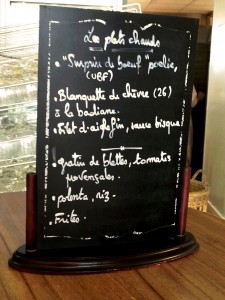 Les plats chauds
• "Surprise de boeuf" poêlée,
(VBF)
• Blanquette de chèvre (26)
à la badiane.
• Filet d'aiglefin, sauce bisque.
• gratin de blettes, tomates
provençales.
• polenta, riz -
• Frites.